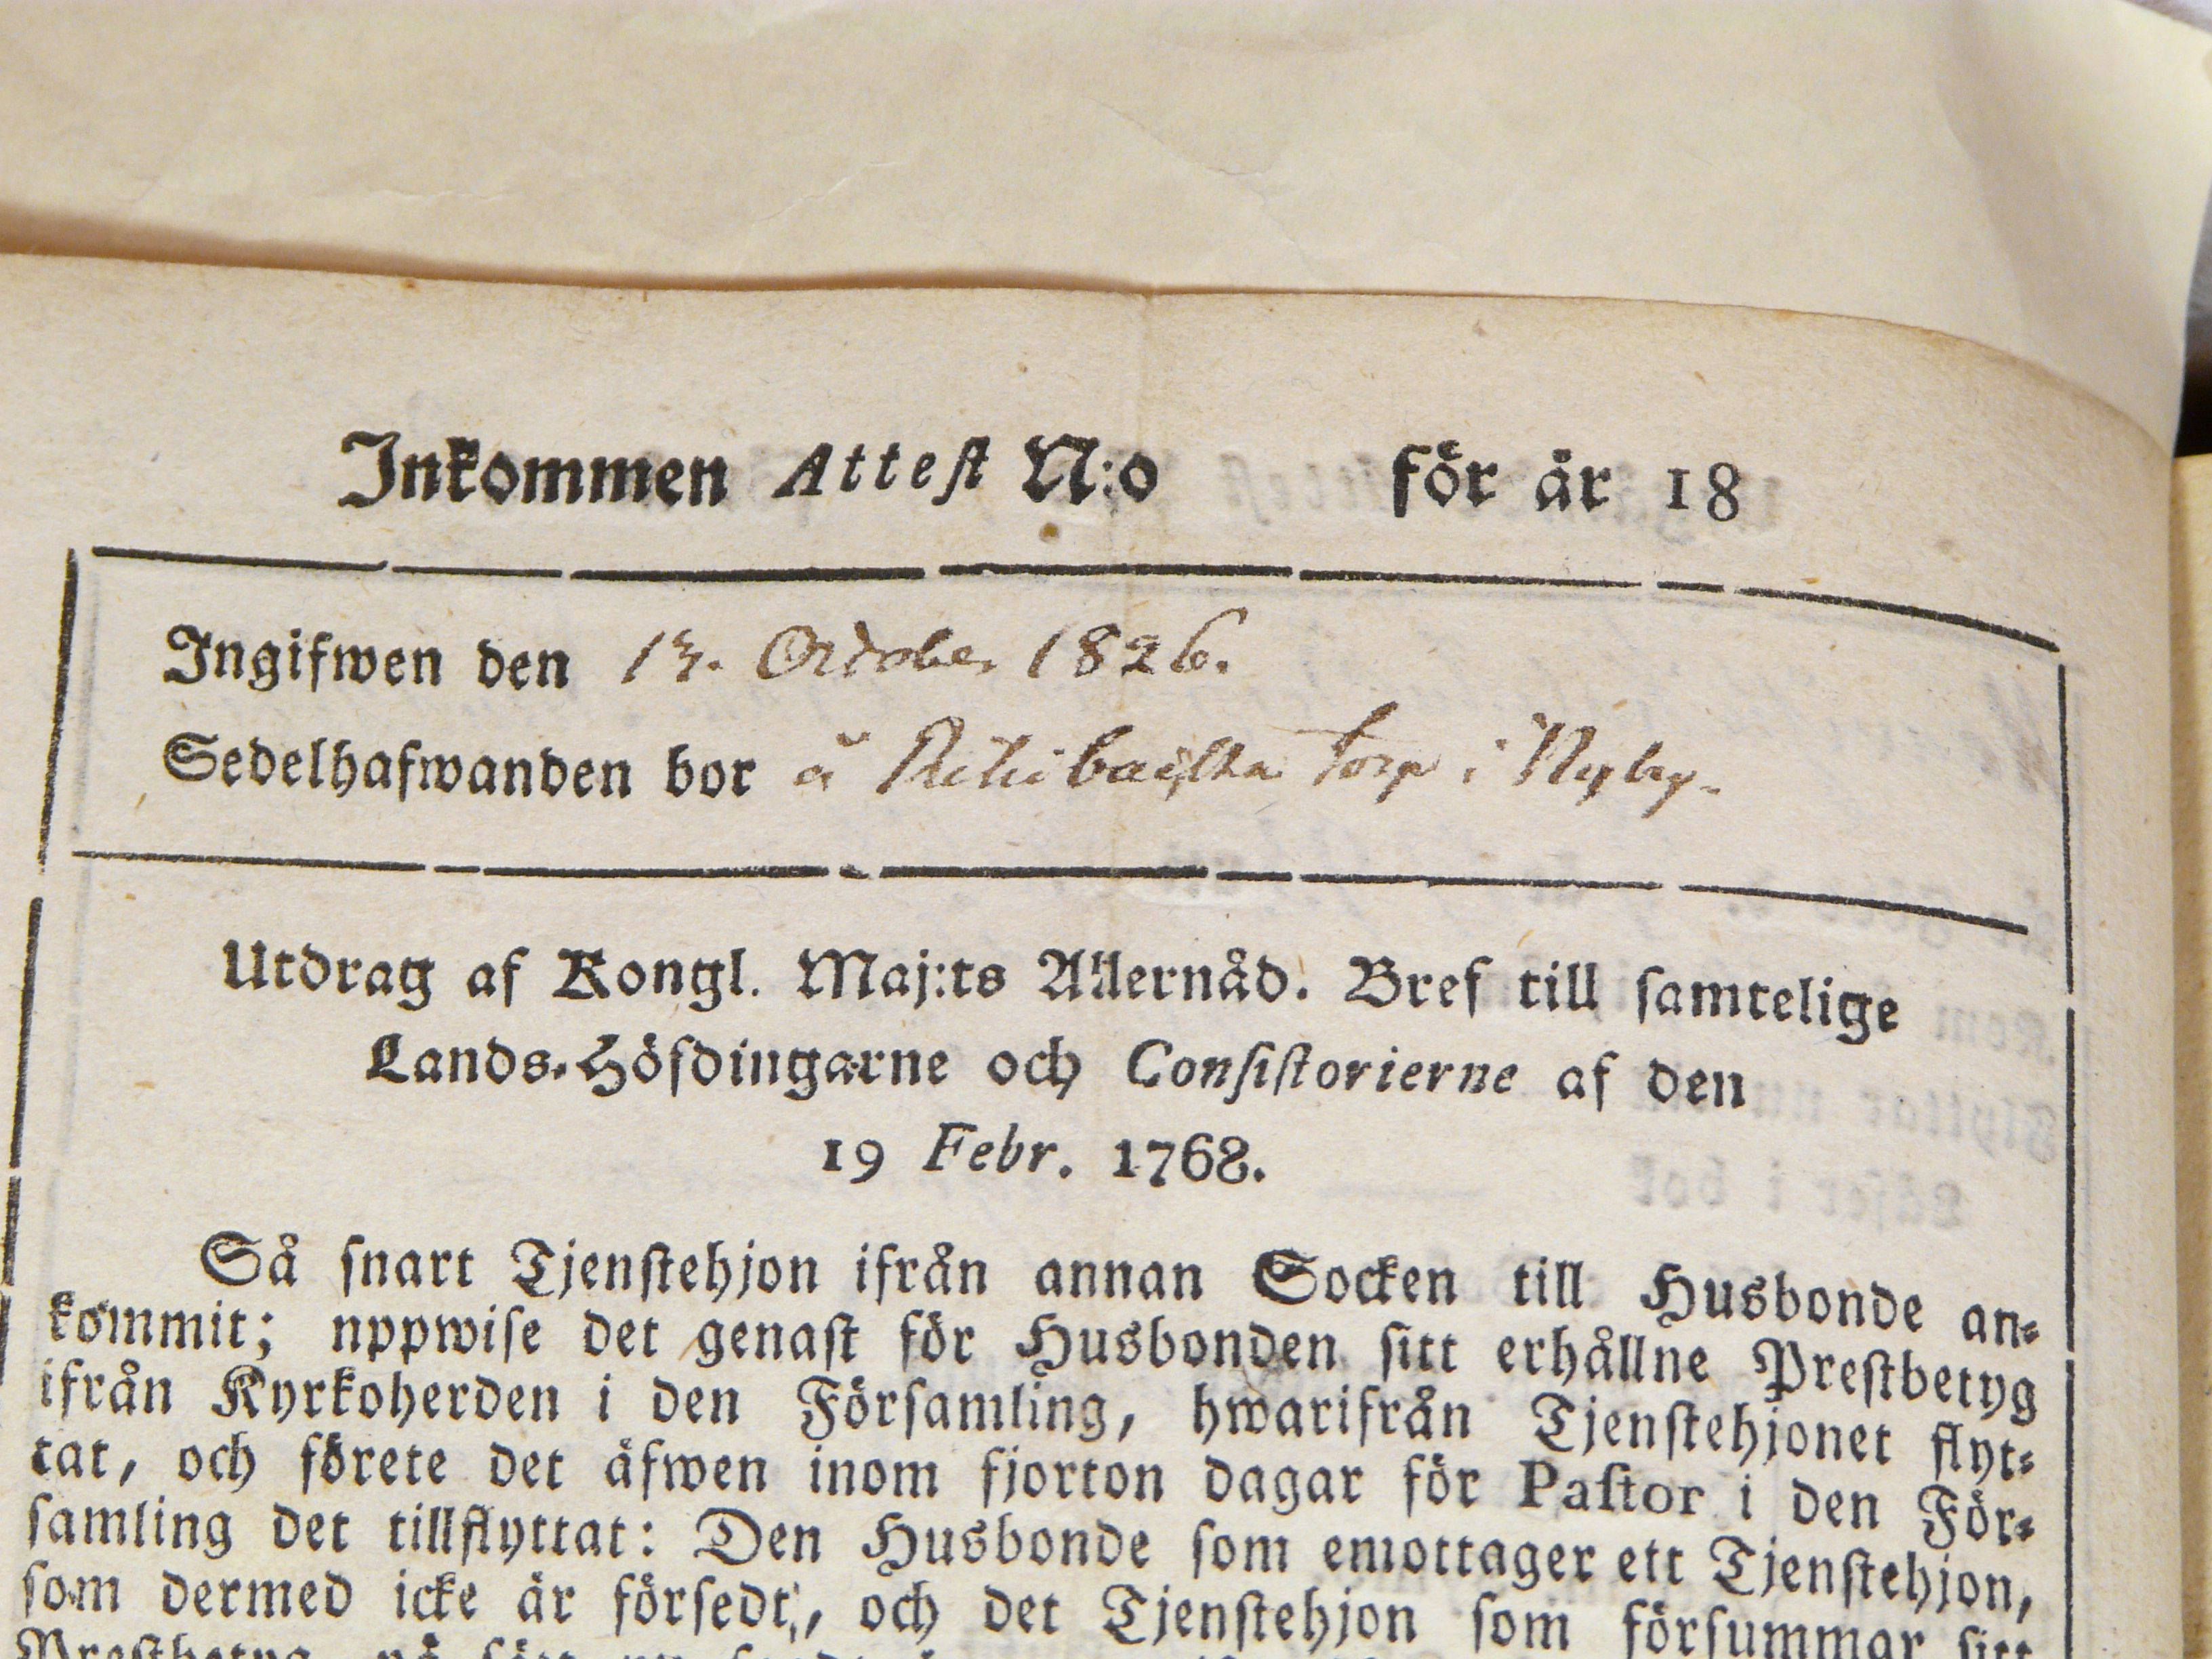 Inkommen Attest N:o för år 18
Ingifwen den 13. October 1826.
Sedelhafwanden bor å torp i Nyby.
Utdrag af Kongl. Maj:ts Allernåd. Bref till samtelige
Lands-Höfdingarne och Consistorierne af den
19 Febr. 1768.
Så snart Tjenstehjon ifrån annan Socken till Husbonde an-
kommit; nppwise det genast för Husbonden sitt erhållne Prestbetyg
ifrån Kyrkoherden i den Församling, hwarifrån Tjenstehjonet flyt-
tat, och förete det äfwen inom fjorton dagar för Pastor i den För-
samling det tillflyttat: Den Husbonde som emottager ett Tjenstehjon,
som dermed icke är försedt, och det Tjenstehjon som försummar sitt
Prestbetyg